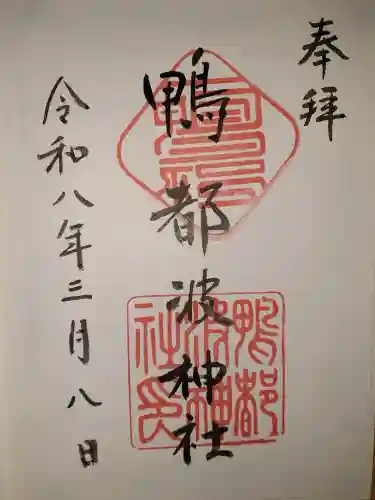 奉拝
鴨都波神社
令和八年三月八日
鴨都波神社印